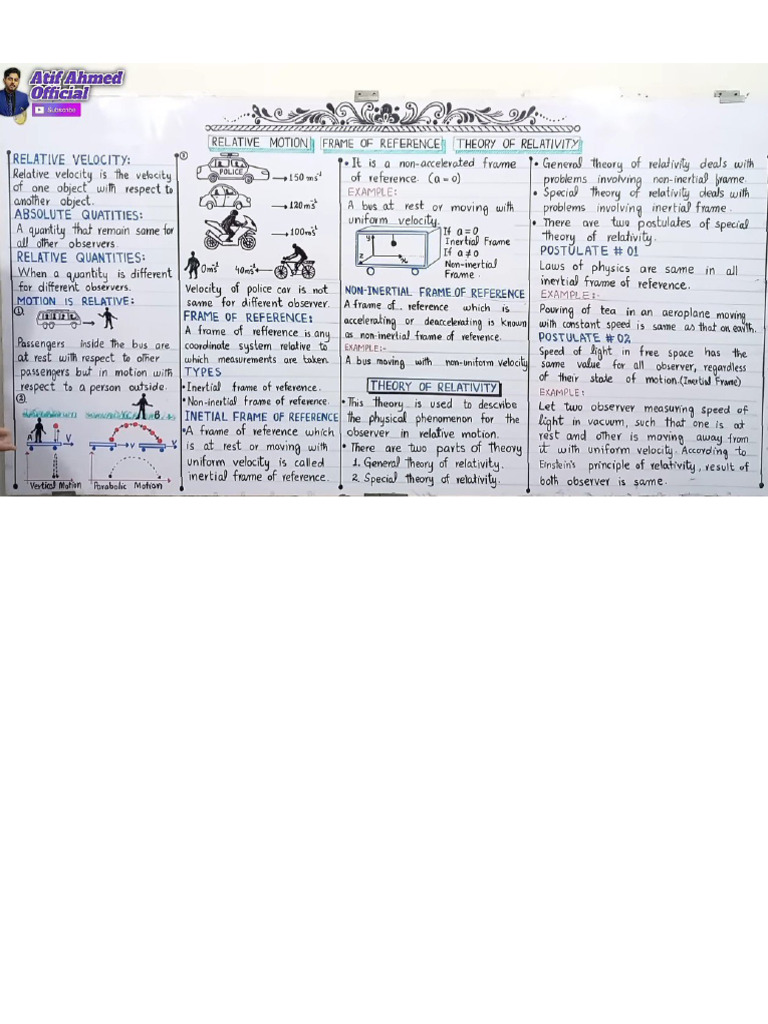 Atif Ahmed
Official
Subscribe
RELATIVE MOTION
FRAME OF REFERENCE
THEORY OF RELATIVITY
RELATIVE VELOCITY:
Relative velocity is the velocity
of one object with respect to
another object.
ABSOLUTE QUATITIES:
A quantity that remain same for
all other observers.
RELATIVE QUANTITIES:
When a quantity is different
for different observers.
MOTION IS RELATIVE:
①
Passengers inside the bus are
at rest with respect to other
passengers but in motion with
respect to a person outside.
②
B
A
V
V
V
Vertical Motion
Parabolic Motion
③
POLICE
150 ms⁻¹
120ms⁻¹
100ms⁻¹
0ms⁻¹
40ms⁻¹
Velocity of police car is not
same for different observer.
FRAME OF REFERENCE:
A frame of refference is any
coordinate system relative to
which measurements are taken.
TYPES
• Inertial frame of reference.
• Non-inertial frame of reference.
INETIAL FRAME OF REFERENCE
• A frame of reference which
is at rest or moving with
uniform velocity is called
inertial frame of reference.
• It is a non-accelerated frame
of reference. (a=0)
EXAMPLE:
A bus at rest or moving with
uniform velocity.
y
z
x
If a=0
Inertial Frame
If a≠0
Non-inertial
Frame.
NON-INERTIAL FRAME OF REFERENCE
A frame of reference which is
accelerating or deaccelerating is known
as non-inertial frame of reference.
EXAMPLE:-
A bus moving with non-uniform velocity
THEORY OF RELATIVITY
• This theory is used to describe
the physical phenomenon for the
observer in relative motion.
• There are two parts of theory
1. General Theory of relativity.
2. Special theory of relativity.
• General theory of relativity deals with
problems involving non-inertial frame.
• Special theory of relativity deals with
problems involving inertial frame.
• There are two postulates of special
theory of relativity.
POSTULATE # 01
Laws of physics are same in all
inertial frame of reference.
EXAMPLE:-
Pouring of tea in an aeroplane moving
with constant speed is same as that on earth.
POSTULATE # 02
Speed of light in free space has the
same value for all observer, regardless
of their state of motion.(Inertial Frame)
EXAMPLE:
Let two observer measuring speed of
light in vacuum, such that one is at
rest and other is moving away from
it with uniform velocity. According to
Einstein's principle of relativity, result of
both observer is same.